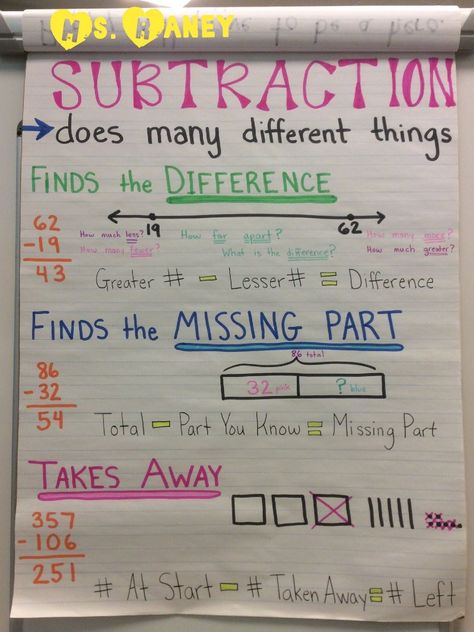 Ms. Haney
SUBTRACTION
does many different things
FINDS the DIFFERENCE
62
-19
43
19
62
How much less?
How many fewer?
How far apart?
What is the difference?
How many more?
How much greater?
Greater # - Lesser # = Difference
FINDS the MISSING PART
86
-32
54
86 total
32 pink
? blue
Total - Part You Know = Missing Part
TAKES AWAY
357
-106
251
# At Start - # Taken Away = # Left